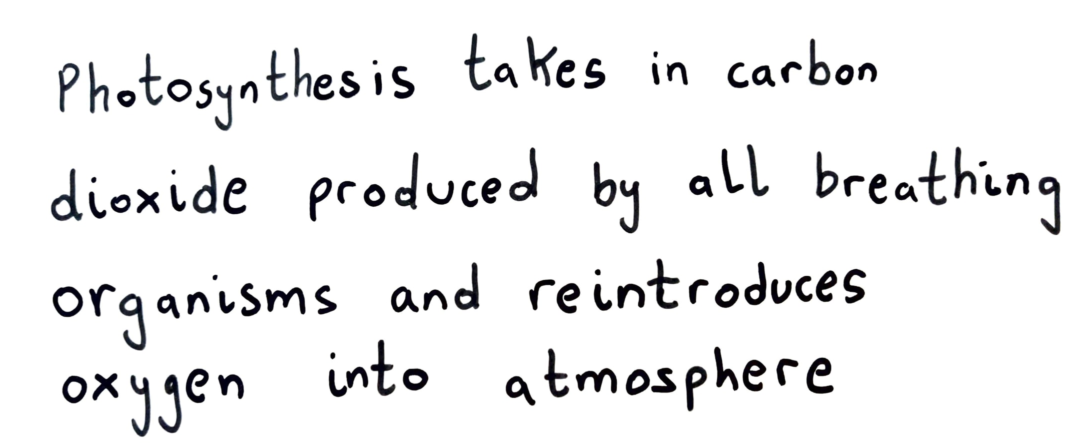 Photosynthesis takes in carbon
dioxide produced by all breathing
organisms and reintroduces
oxygen into atmosphere